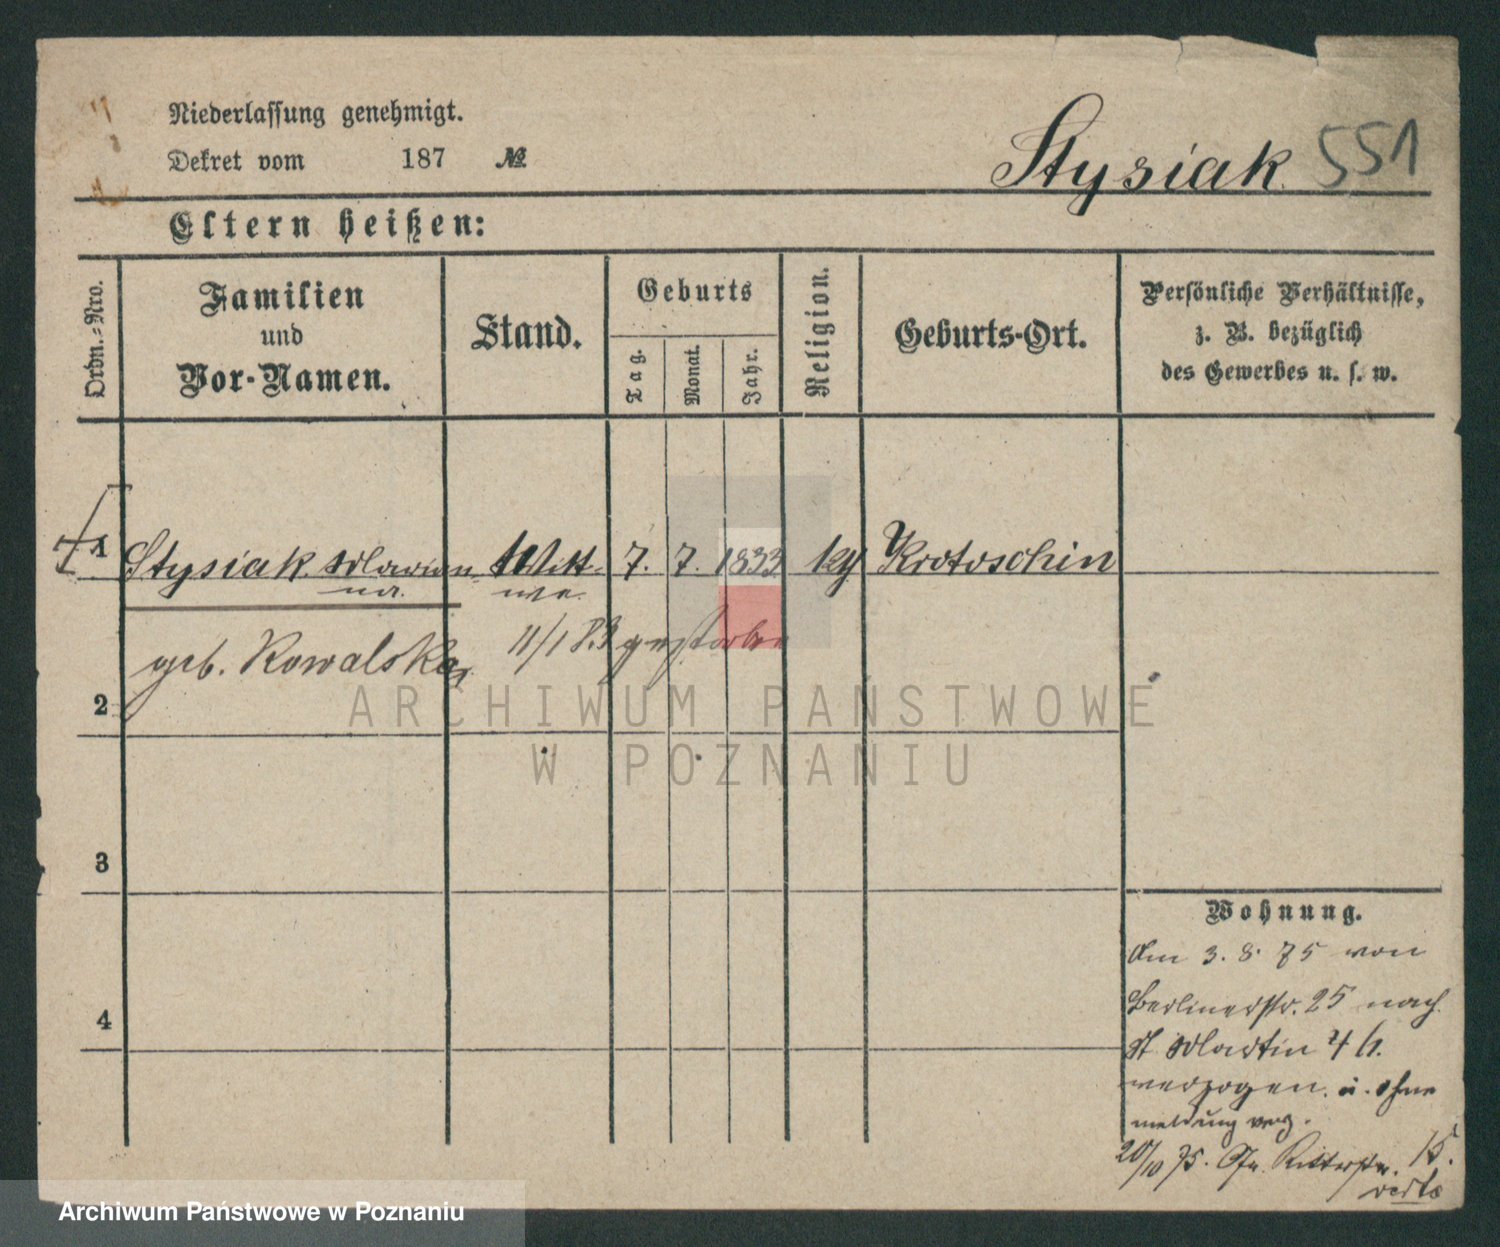 Niederlassung genehmigt.
Dekret vom 187 №
Stysiak 551
Eltern heißen:
Ordn.-Nro.
Familien
und
Vor-Namen.
Stand.
Geburts
Tag.
Monat.
Jahr.
Religion.
Geburts-Ort.
Persönliche Verhältnisse,
z. B. bezüglich
des Gewerbes u. s. w.
1 Stysiak Marian- Witt- 7. 7. 1833 Krotoschin
na. we.
geb. Kowalska 11/1 83 gestorben
2
ARCHIWUM PAŃSTWOWE
W POZNANIU
3
Wohnung.
Am 3. 8. 75 von
Berlinerstr. 25 nach
St Martin
verzogen. u. ohne
meldung verz.
20/10 75. Ritterstr. 15.
verte
4
Archiwum Państwowe w Poznaniu